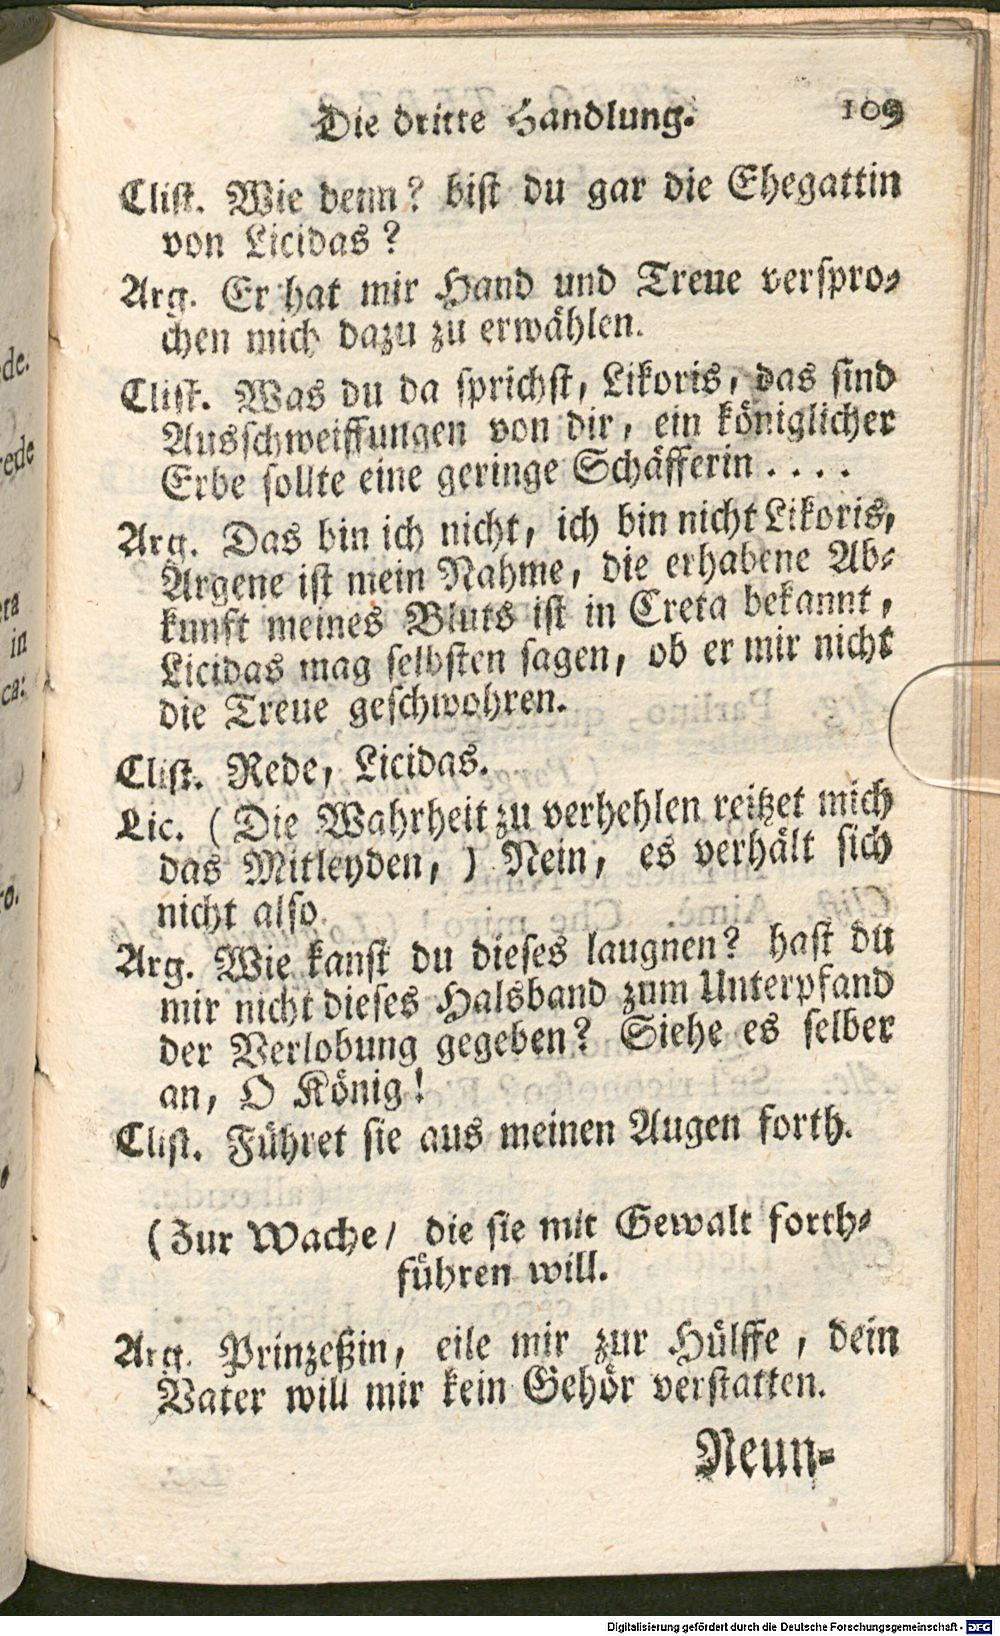 Die dritte Handlung. 109
Clist. Wie denn? bist du gar die Ehegattin
von Licidas?
Arg. Er hat mir Hand und Treue verspro-
chen mich dazu zu erwählen.
Clist. Was du da sprichst, Likoris, das sind
Ausschweiffungen von dir, ein königlicher
Erbe sollte eine geringe Schäfferin . . . .
Arg. Das bin ich nicht, ich bin nicht Likoris,
Argene ist mein Nahme, die erhabene Ab-
kunft meines Bluts ist in Creta bekannt,
Licidas mag selbsten sagen, ob er mir nicht
die Treue geschwohren.
Clist. Rede, Licidas.
Lic. (Die Wahrheit zu verhehlen reitzet mich
das Mitleyden,) Nein, es verhält sich
nicht also.
Arg. Wie kanst du dieses laugnen? hast du
mir nicht dieses Halsband zum Unterpfand
der Verlobung gegeben? Siehe es selber
an, O König!
Clist. Führet sie aus meinen Augen forth.
(Zur Wache/ die sie mit Gewalt forth-
führen will.
Arg. Prinzeßin, eile mir zur Hülffe, dein
Vater will mir kein Gehör verstatten.
Neun-
Digitalisierung gefördert durch die Deutsche Forschungsgemeinschaft - DFG